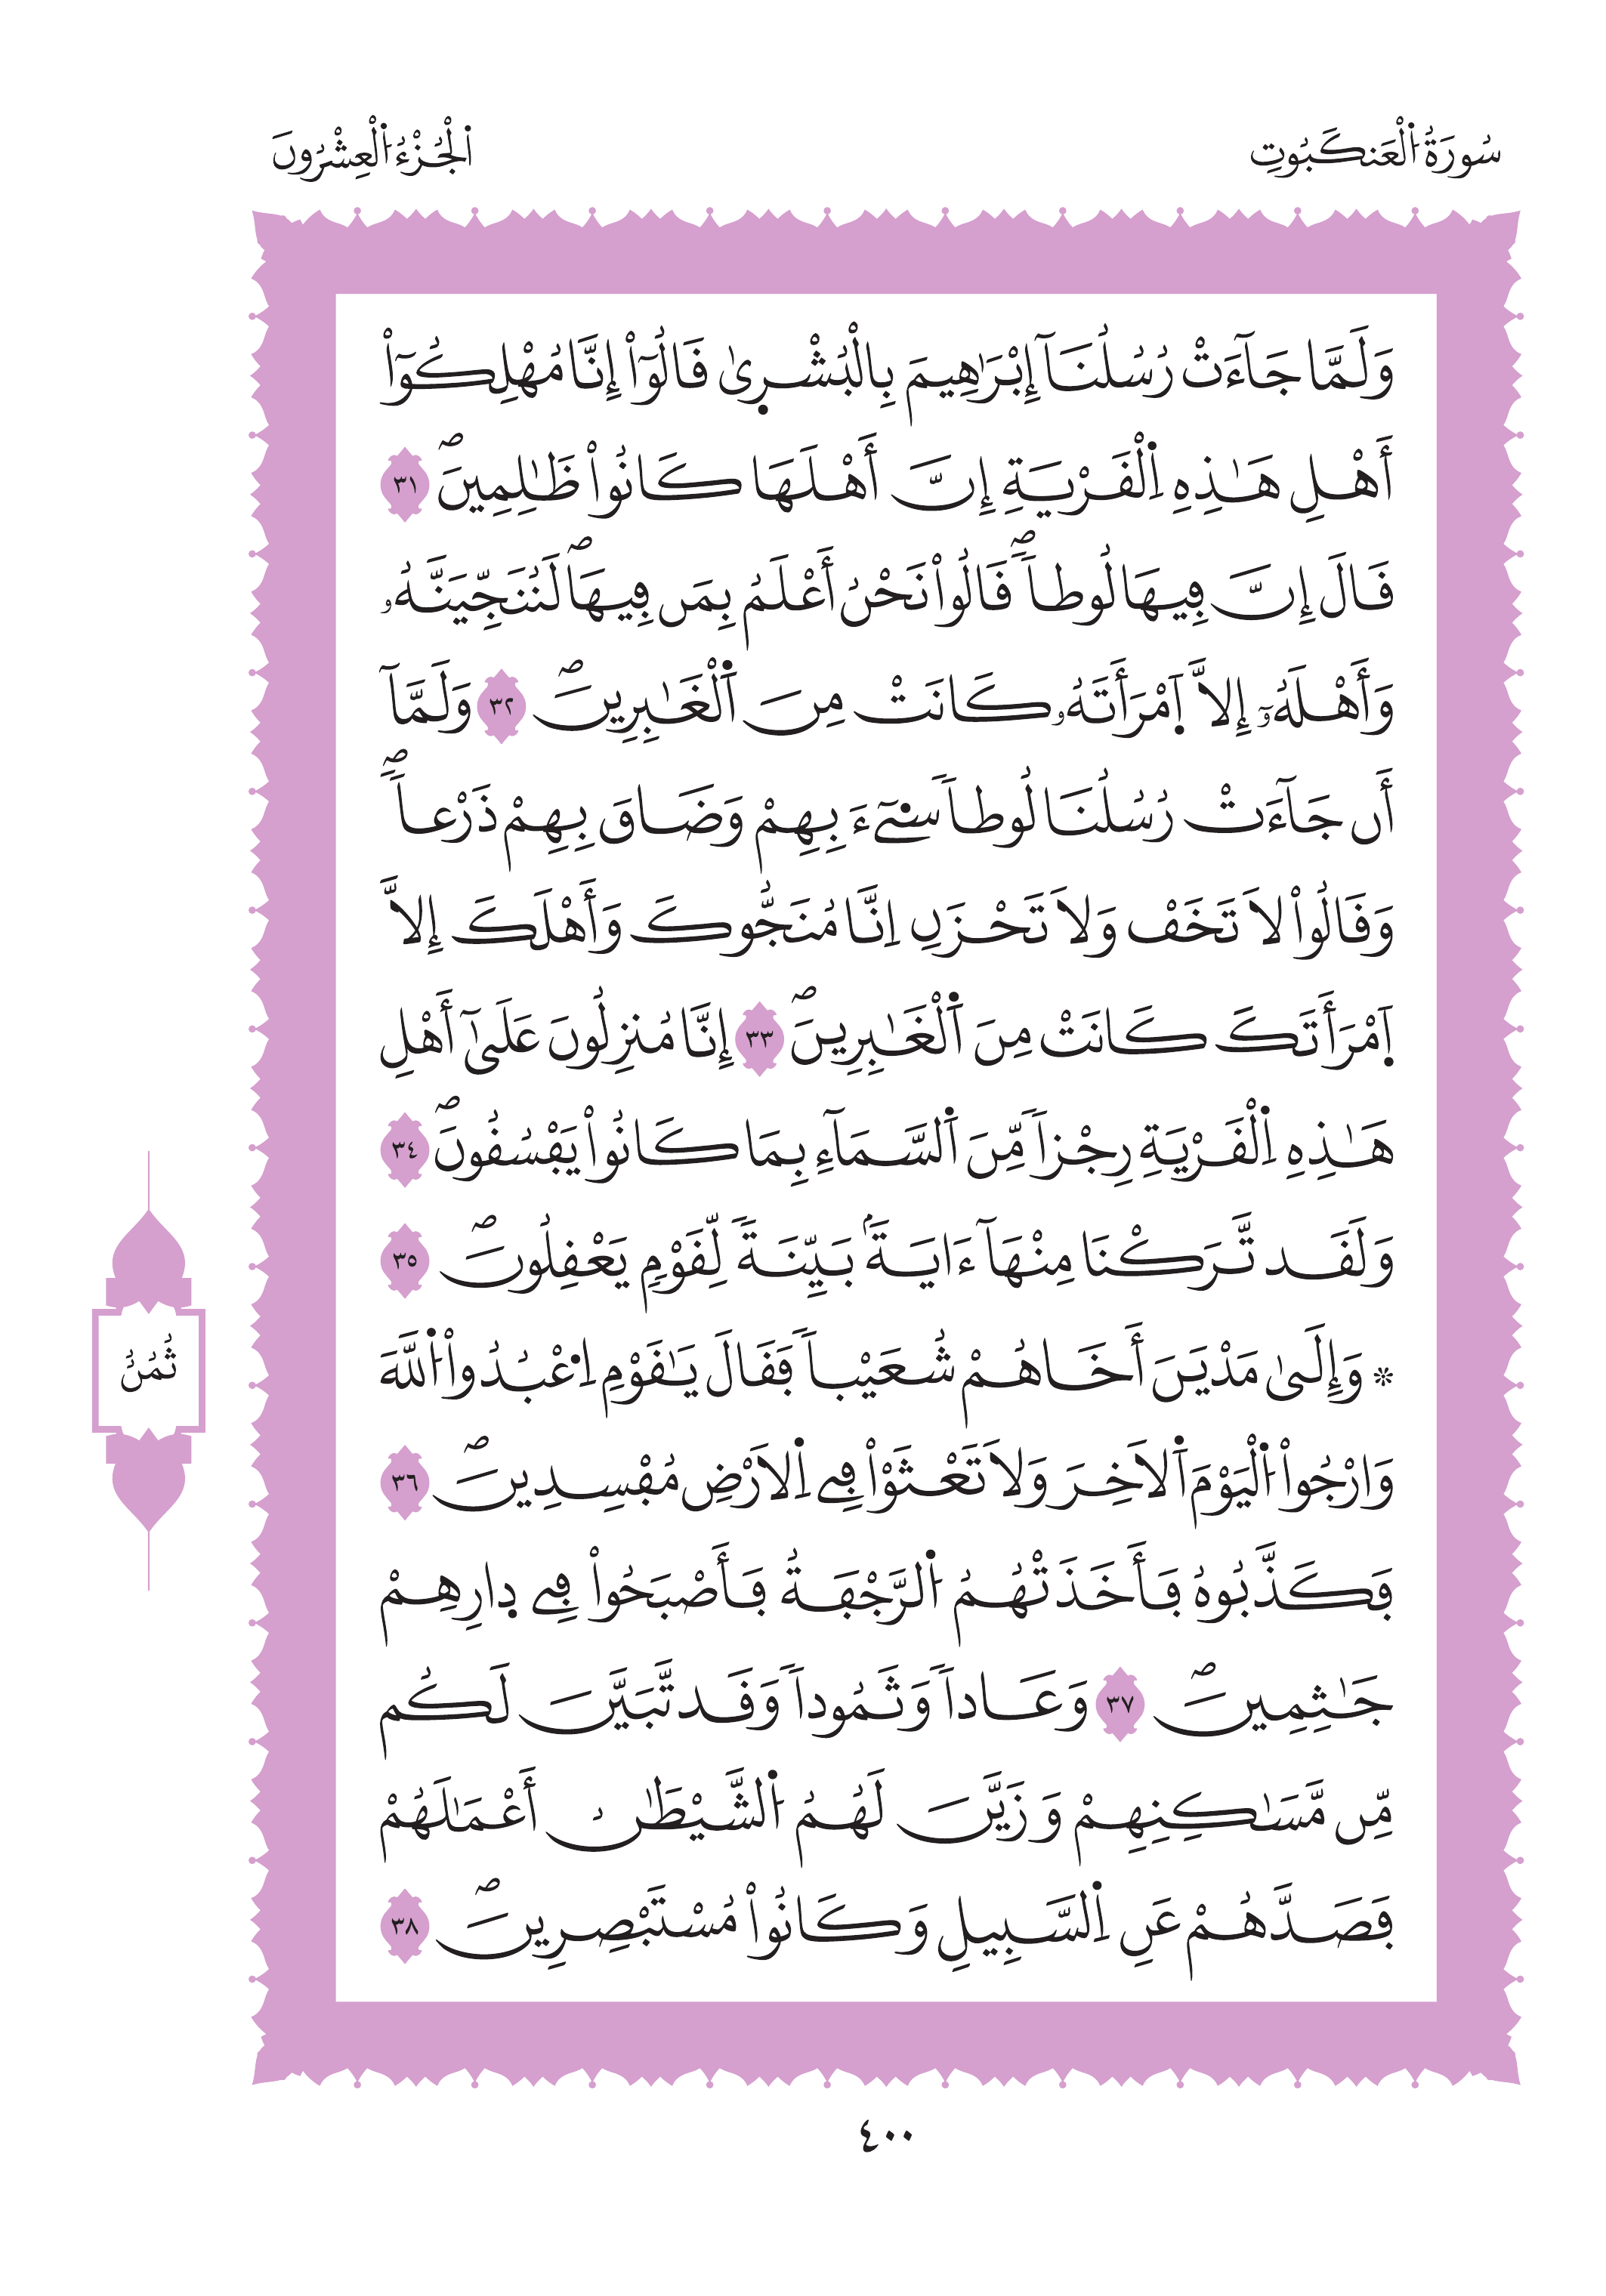 سُورَةُ اُ۬لْعَنكَبُوتِ
اَ۬لْجُزْءُ اُ۬لْعِشْرُونَ
وَلَمَّا جَآءَتْ رُسُلُنَآ إِبْرَٰهِيمَ بِالْبُشْر۪ىٰ قَالُوٓاْ إِنَّا مُهْلِكُوٓاْ
أَهْلِ هَٰذِهِ اِ۬لْقَرْيَةِ إِنَّ أَهْلَهَا كَانُواْ ظَٰلِمِينَۖ ٣١
قَالَ إِنَّ فِيهَا لُوطاٗۖ قَالُواْ نَحْنُ أَعْلَمُ بِمَن فِيهَاۖ لَنُنَجِّيَنَّهُۥ
وَأَهْلَهُۥٓ إِلَّا اَ۪مْرَأَتَهُۥ كَانَتْ مِنَ اَ۬لْغَٰبِرِينَۖ ٣٢ وَلَمَّآ
أَن جَآءَتْ رُسُلُنَا لُوطاٗ سِۓٓءَ بِهِمْ وَضَاقَ بِهِمْ ذَرْعاٗۖ
وَقَالُواْ لَا تَخَفْ وَلَا تَحْزَنِ اِنَّا مُنَجُّوكَ وَأَهْلَكَ إِلَّا
اَ۪مْرَأَتَكَ كَانَتْ مِنَ اَ۬لْغَٰبِرِينَۖ ٣٣ إِنَّا مُنزِلُونَ عَلَىٰٓ أَهْلِ
هَٰذِهِ اِ۬لْقَرْيَةِ رِجْزاٗ مِّنَ اَ۬لسَّمَآءِ بِمَا كَانُواْ يَفْسُقُونَۖ ٣٤
وَلَقَد تَّرَكْنَا مِنْهَآ ءَايَةَۢ بَيِّنَةٗ لِّقَوْمٖ يَعْقِلُونَۖ ٣٥
۞ وَإِلَىٰ مَدْيَنَ أَخَاهُمْ شُعَيْباٗ فَقَالَ يَٰقَوْمِ اِ۟عْبُدُواْ اُ۬للَّهَ
وَارْجُواْ اُ۬لْيَوْمَ اَ۬لَاخِرَ وَلَا تَعْثَوْاْ فِے اِ۬لَارْضِ مُفْسِدِينَۖ ٣٦
فَكَذَّبُوهُ فَأَخَذَتْهُمُ اُ۬لرَّجْفَةُ فَأَصْبَحُواْ فِے د۪ارِهِمْ
جَٰثِمِينَۖ ٣٧ وَعَاداٗ وَثَمُوداٗ وَقَد تَّبَيَّنَ لَكُم
مِّن مَّسَٰكِنِهِمْ وَزَيَّنَ لَهُمُ اُ۬لشَّيْطَٰنُ أَعْمَٰلَهُمْ
فَصَدَّهُمْ عَنِ اِ۬لسَّبِيلِ وَكَانُواْ مُسْتَبْصِرِينَۖ ٣٨
ثُمُنُ
٤٠٠